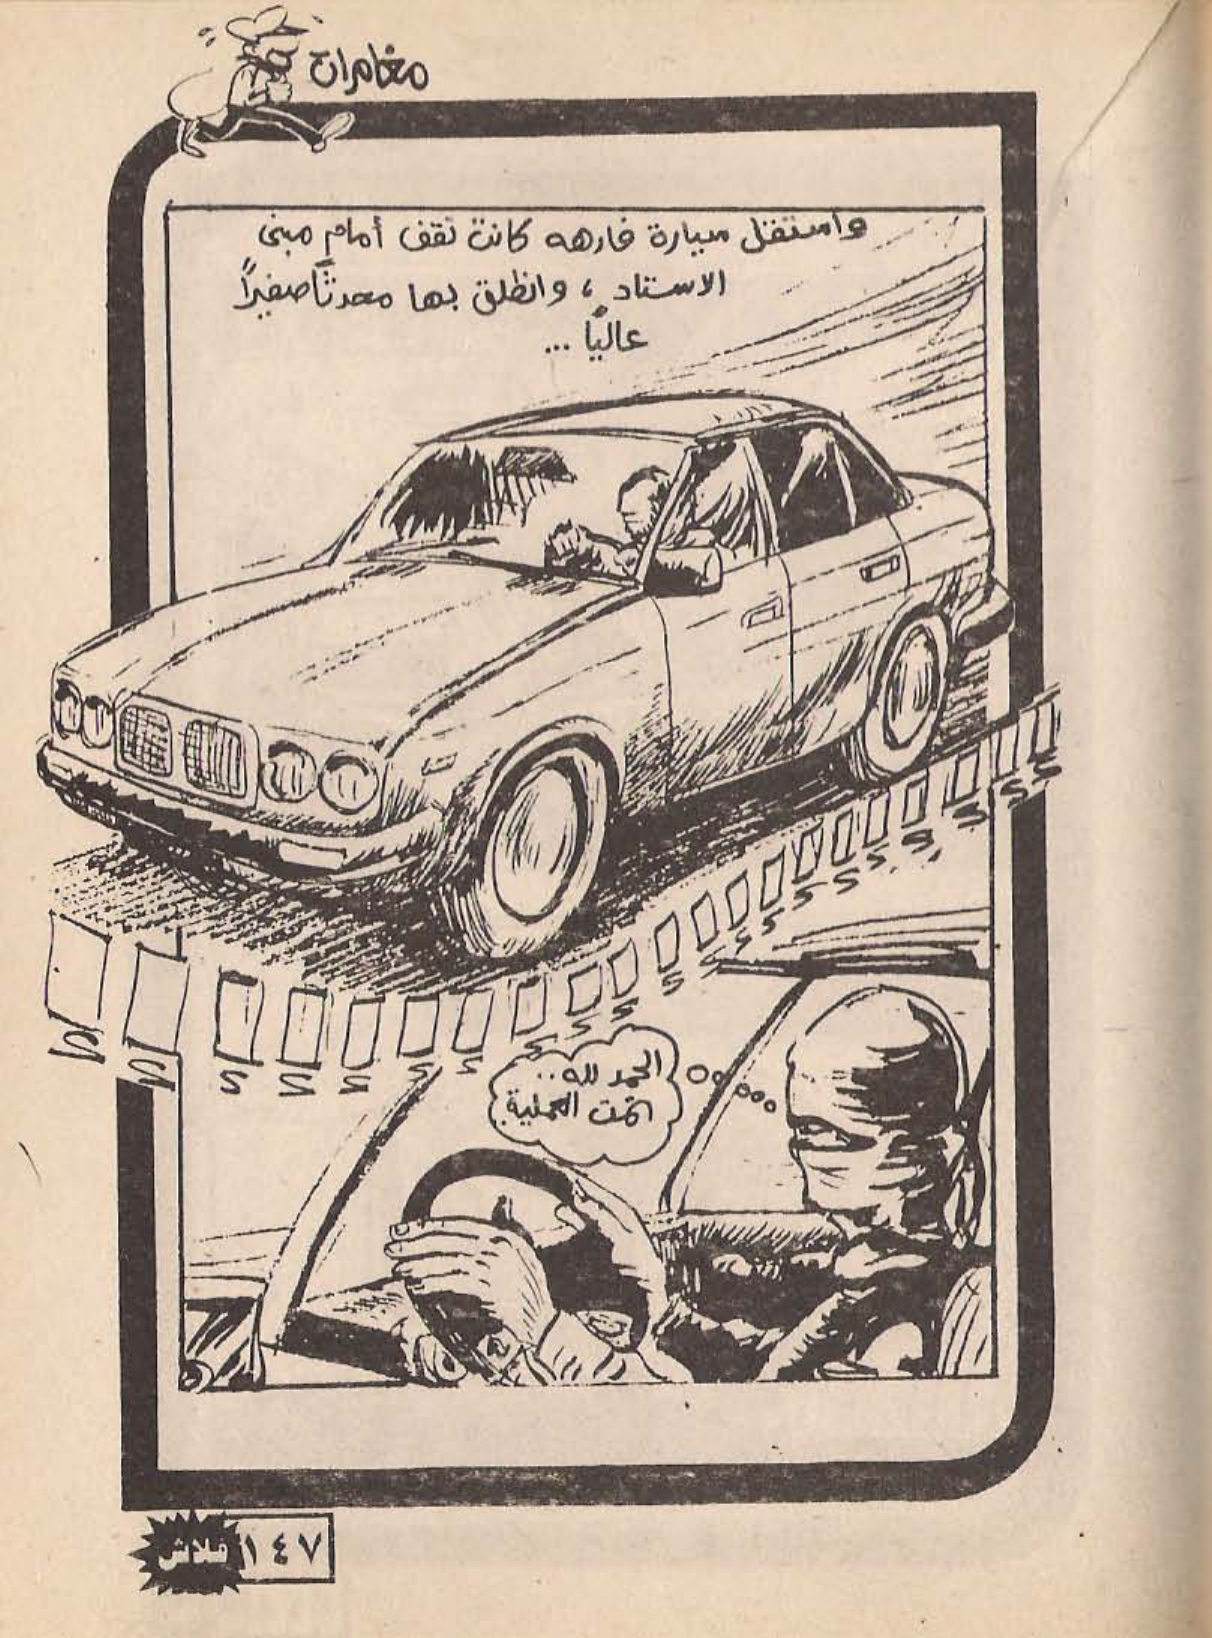 مغامرات
واستقل سيارة فارهه كانت تقف أمام مبنى
الاستاد ، وانطلق بها محدثًا صفيرًا
عاليًا ...
الحمد لله ..
تمت العملية
فلاش ١٤٧